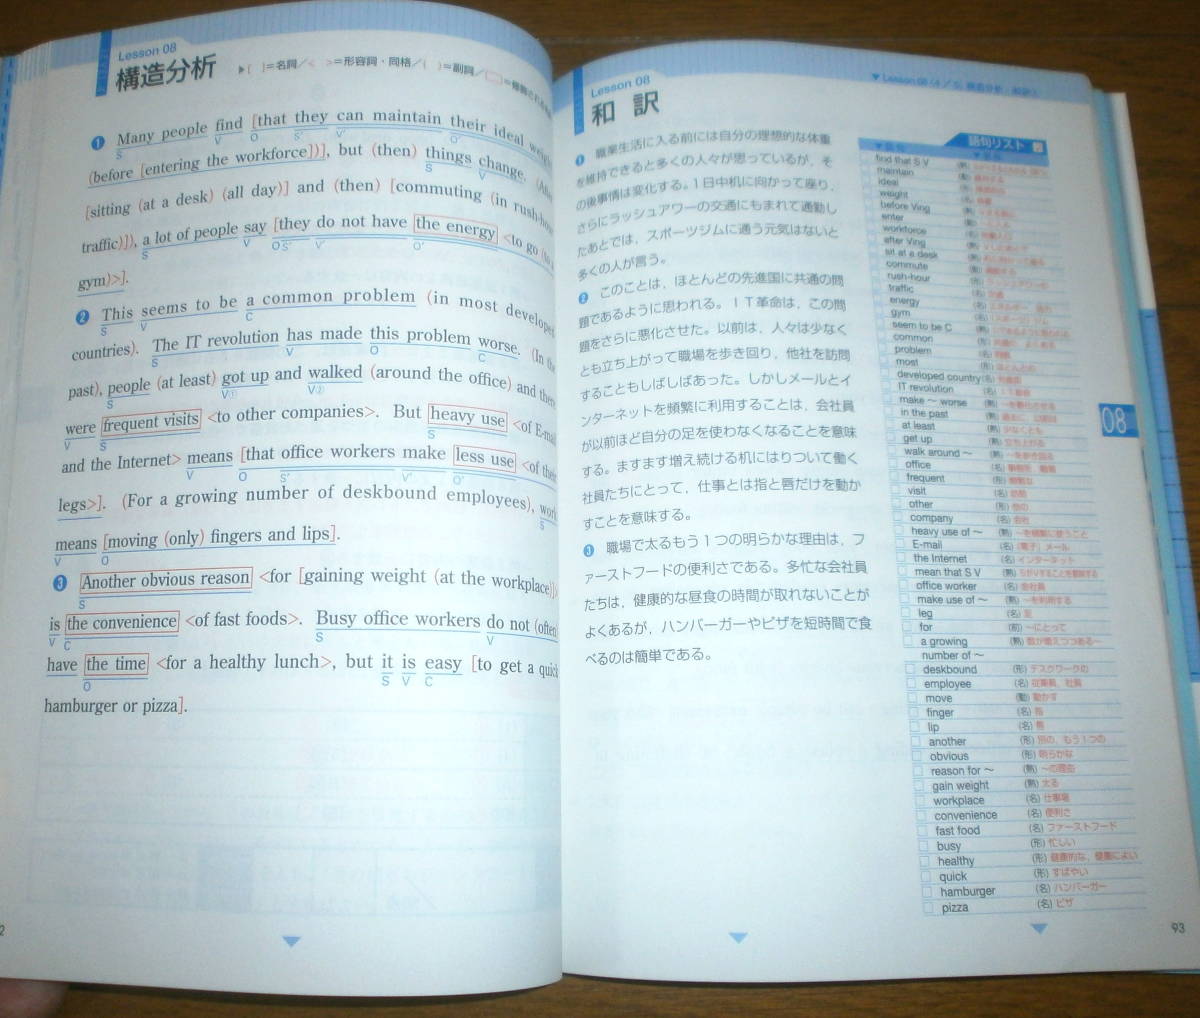 Lesson 08
構造分析
▶[ ]=名詞／< >=形容詞・同格／( )=副詞／
❶ Many people find [that they can maintain their ideal weight
S V O S' V' O'
(before [entering the workforce])], but (then) things change. (After
S V
[sitting (at a desk) (all day)] and (then) [commuting (in rush-hour
traffic)]), a lot of people say [they do not have the energy <to go (to a
S V O S' V' O'
gym)>].
❷ This seems to be a common problem (in most developed
S V C
countries). The IT revolution has made this problem worse. (In the
S V O C
past), people (at least) got up and walked (around the office) and there
S V① V②
were frequent visits <to other companies>. But heavy use <of E-mail
V S S
and the Internet> means [that office workers make less use <of their
V O S' V' O'
legs>]. (For a growing number of deskbound employees), work
S
means [moving (only) fingers and lips].
V O
❸ Another obvious reason <for [gaining weight (at the workplace)]>
S
is the convenience <of fast foods>. Busy office workers do not (often)
V C S V
have the time <for a healthy lunch>, but it is easy [to get a quick
O S V C
hamburger or pizza].
Lesson 08
和訳
❶ 職業生活に入る前には自分の理想的な体重
を維持できると多くの人々が思っているが，そ
の後事情は変化する。1日中机に向かって座り，
さらにラッシュアワーの交通にもまれて通勤し
たあとでは，スポーツジムに通う元気はないと
多くの人が言う。
❷ このことは，ほとんどの先進国に共通の問
題であるように思われる。IT革命は，この問
題をさらに悪化させた。以前は，人々は少なく
とも立ち上がって職場を歩き回り，他社を訪問
することもしばしばあった。しかしメールとイ
ンターネットを頻繁に利用することは，会社員
が以前ほど自分の足を使わなくなることを意味
する。ますます増え続ける机にはりついて働く
社員たちにとって，仕事とは指と唇だけを動か
すことを意味する。
❸ 職場で太るもう1つの明らかな理由は，フ
ァーストフードの便利さである。多忙な会社員
たちは，健康的な昼食の時間が取れないことが
よくあるが，ハンバーガーやピザを短時間で食
べるのは簡単である。
語句リスト
find that S V (熟)
maintain (動)
ideal (形)
weight (名)
before Ving
enter (動)
workforce (名)
after Ving
sit at a desk
commute (動)
rush-hour (形)
traffic (名)
energy (名)
gym (名)
seem to be C (熟)
common (形)
problem (名) 問題
most (形) ほとんどの
developed country (名) 先進国
IT revolution (名) IT革命
make ～ worse (熟) ～を悪化させる
in the past (熟)
at least (熟) 少なくとも
get up (熟) 立ち上がる
walk around ～ (熟) ～を歩き回る
office (名)
frequent (形) 頻繁な
visit (名) 訪問
other (形) 他の
company (名) 会社
heavy use of ～ (熟) ～を頻繁に使うこと
E-mail (名) (電子)メール
the Internet (名) インターネット
mean that S V (熟) SがVすることを意味する
office worker (名) 会社員
make use of ～ (熟) ～を利用する
leg (名) 足
for (前) ～にとって
a growing (熟) 数が増えつつある～
number of ～
deskbound (形) デスクワークの
employee (名) 従業員，社員
move (動) 動かす
finger (名) 指
lip (名) 唇
another (形) 別の，もう1つの
obvious (形) 明らかな
reason for ～ (熟) ～の理由
gain weight (熟) 太る
workplace (名) 仕事場
convenience (名) 便利さ
fast food (名) ファーストフード
busy (形) 忙しい
healthy (形) 健康的な，健康によい
quick (形) すばやい
hamburger (名) ハンバーガー
pizza (名) ピザ
08
93